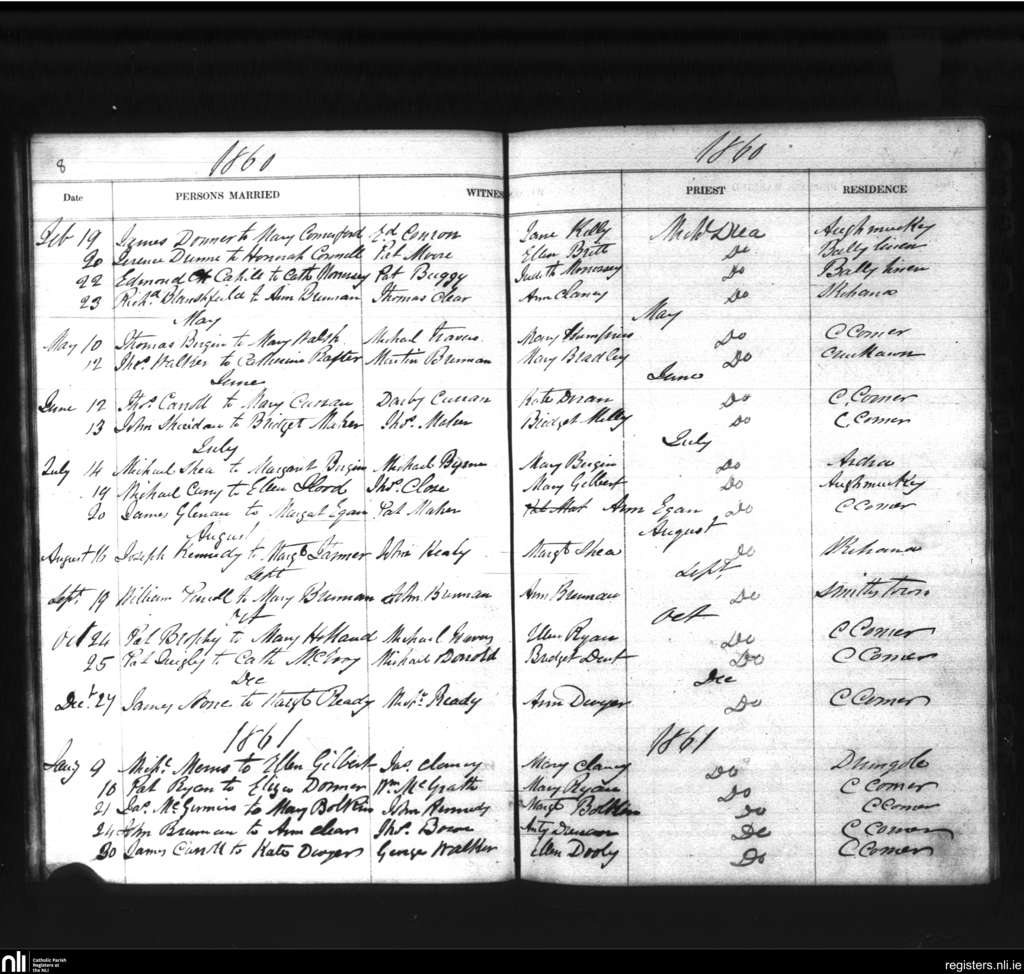 8 1860 1860
Date PERSONS MARRIED WITNES PRIEST RESIDENCE
Feb 19 James Donner to Mary Comerford Ed Conron Jane Kelly Michl Dea Aughmuckey
20 Terence Dunne to Honorah Connell Pat Moore Ellen Britt Do
22 Edmond Cahill to Cath Morrissey Pat Buggy Judith Morrissey Do
23 Richd Blanshfield to Ann Brennan Thomas Clear Ann Clancy Do Skehana
May May
May 10 Thomas Bergin to Mary Walsh Michael Travers Mary Humphries Do C Comer
12 Thos Walker to Catherine Rafter Martin Brennan Mary Bradley Do
June June
June 12 Thos Carroll to Mary Curran Darby Curran Kate Do C. Comer
13 John Sheridan to Bridget Maher Thos Maher Bridget Do C. Comer
July July
July 14 Michael Shea to Margaret Bergin Michael Byrne Mary Bergin Do Ardra
19 Michael Curry to Ellen Flood Thos Close Mary Gilbert Do Aughmuckey
20 James to Margat Egan Pat Maher Ann Egan Do C Comer
August August
August 16 Joseph Kennedy to Margt John Healy Margt Shea Do Skehana
Sept Sept
Sept 19 William to Mary Brennan John Brennan Ann Brennan Do Smithstown
Oct Oct
Oct 24 Pat Brophy to Mary Holland Michael Ellen Ryan Do C Comer
25 Pat Quigley to Cath McEvoy Michael Bridget Dent Do C Comer
Dec Dec
Dec 27 James None to Margt Ready Ready Ann Dwyer Do C Comer
1861 1861
Jany 9 to Ellen Gilbert Jas Clancy Mary Clancy Do
10 Pat Ryan to Eliza Donner Wm McGrath Mary Ryan Do C Comer
21 Jas to Mary John Kennedy Margt Do C Comer
24 John Brennan to Ann Clear Thos Bowe Do C Comer
30 James Carroll to Kate Dwyer George Walker Ellen Dooly Do C Comer
nli Catholic Parish
Registers at
the NLI
registers.nli.ie